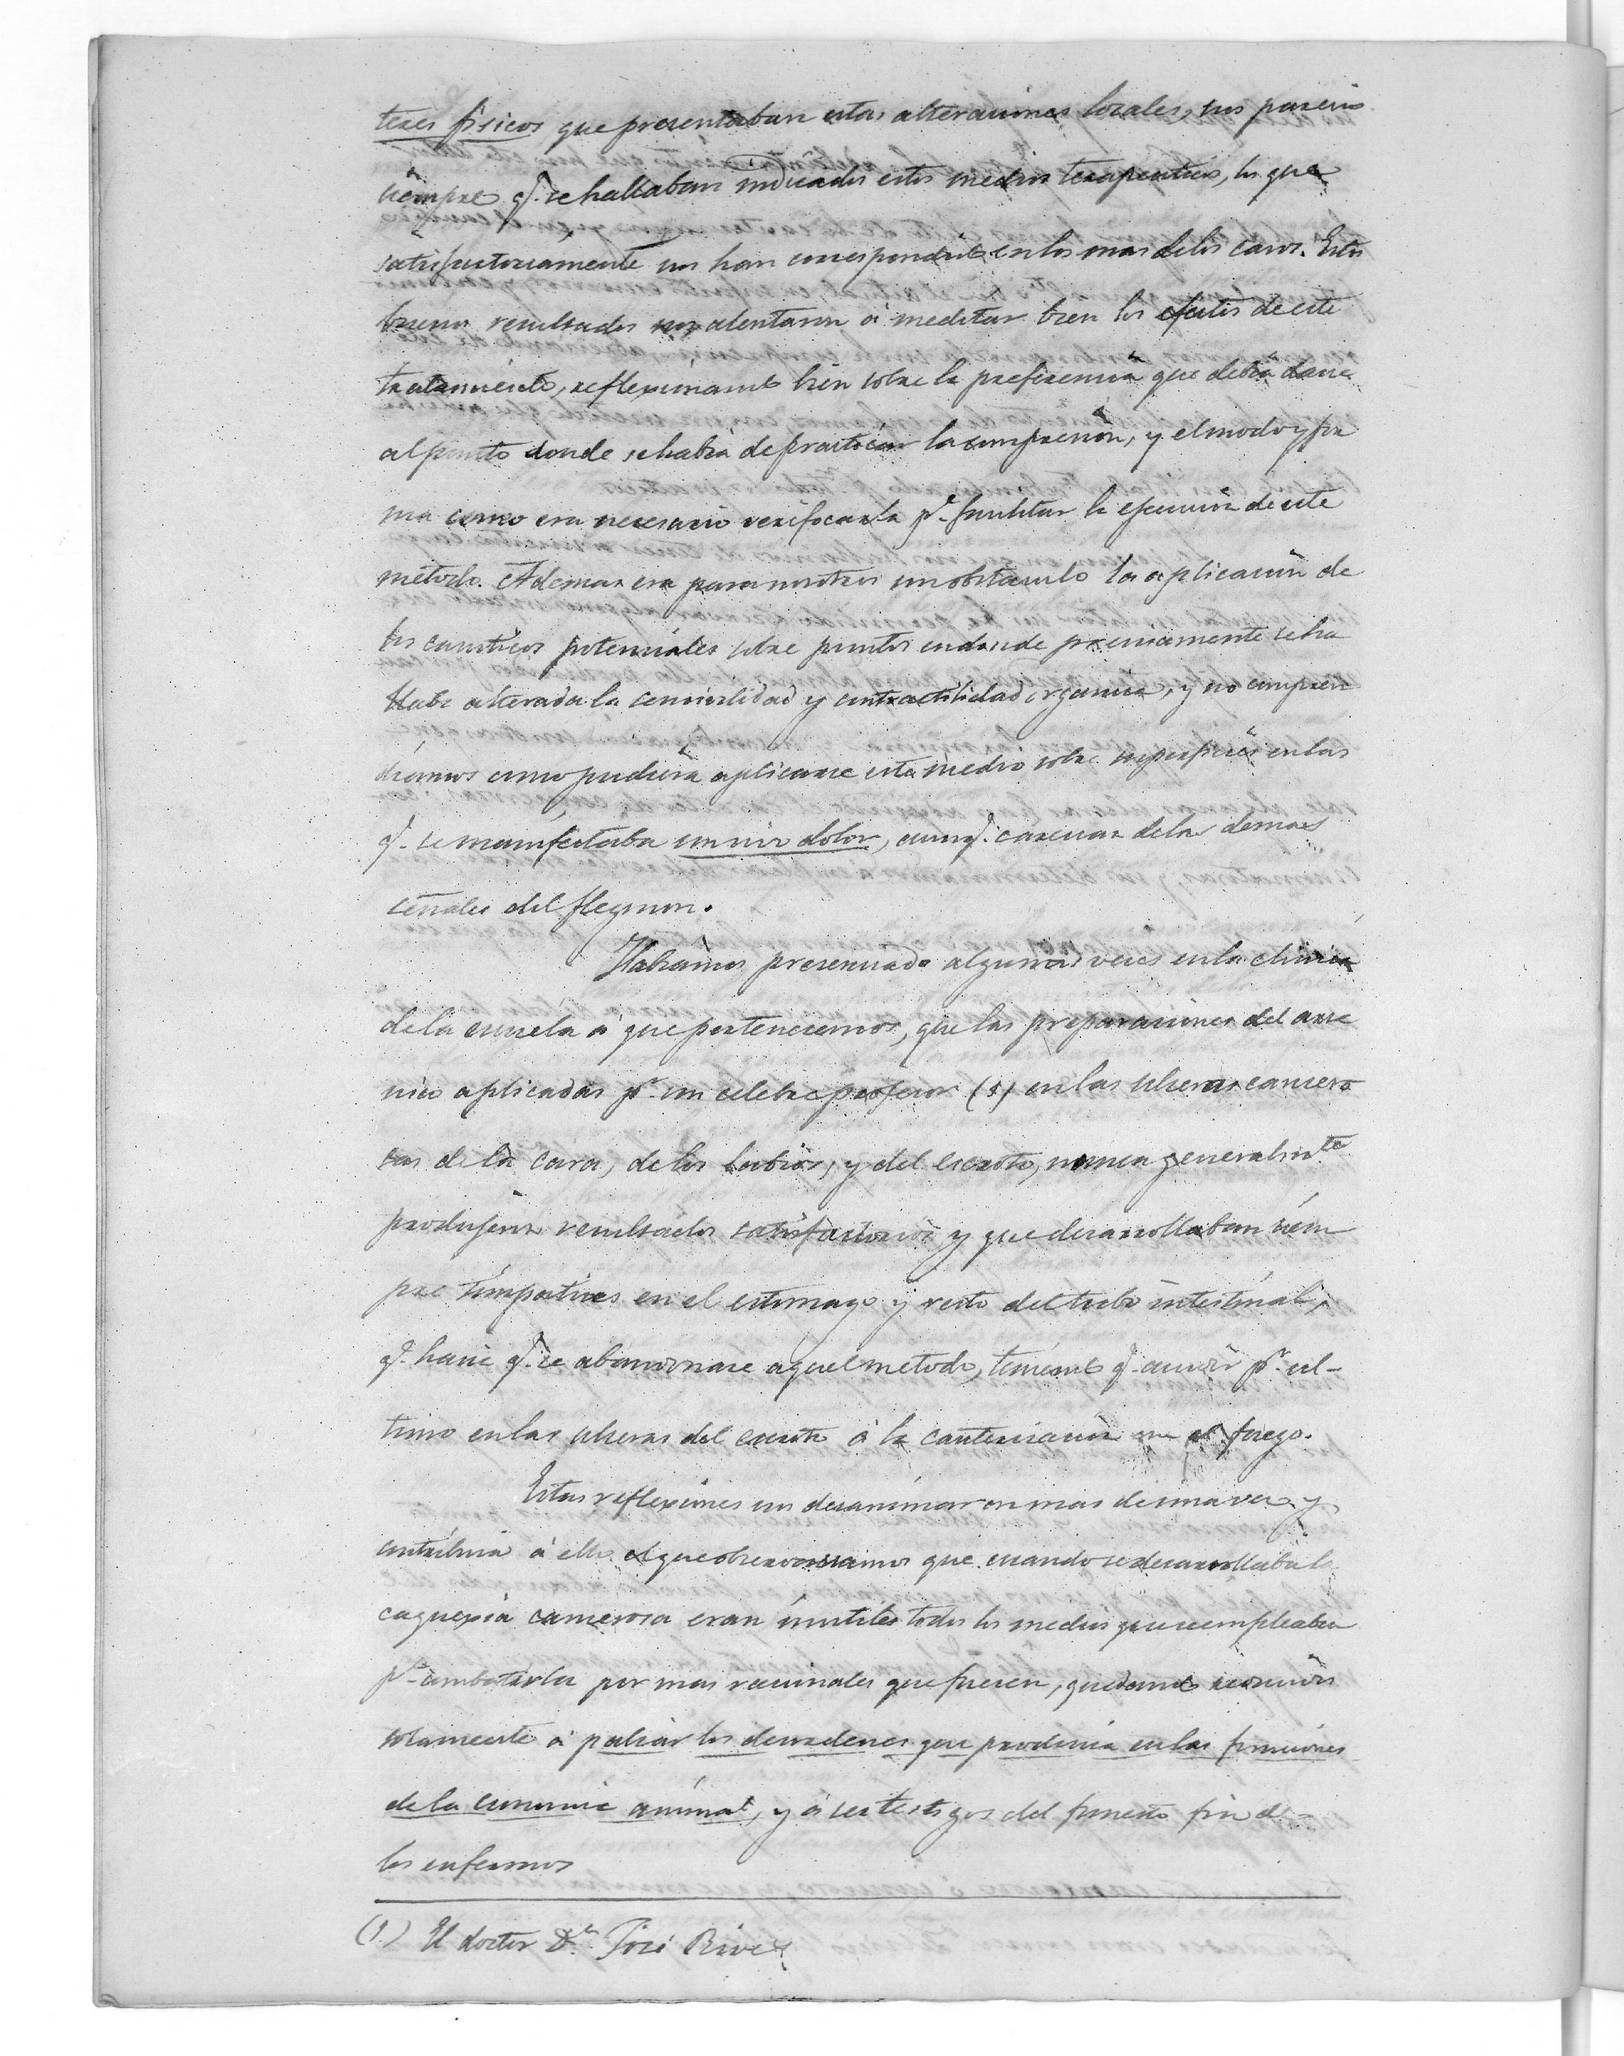 teres físicos, que presentaban estas alteraciones locales, nos parecio
siempre q.e se hallaban indicados estos medios terapeuticos, los que
satisfactoriamente nos han correspondido en los mas delos casos. Estos
buenos resultados nos alentaron á meditar bien los efectos de este
tratamiento, reflexionando bien sobre la preferencia que debia darse
al punto donde se habia de practicar la compresion, y el modo y for
ma como era necesario verificarla p.a facilitar la ejecucion de este
método. Ademas era para nosotros un obstaculo la aplicacion de
los causticos potenciales sobre puntos en donde precisamente se ha
llaba alterada la sensibilidad y contractilidad organica, y no compren
diamos como pudiera aplicarse este medio sobre superficies en las
q.e se manifestaba un vivo dolor, aunq.e carecian delas demas
señales del flegmon.
Habiamos presenciado algunas veces en la clinica
de la escuela á que pertenecemos, que las preparaciones del arse
nico aplicadas p.r un celebre profesor (1) en las ulceras cancero
sas de la cara, de los labios, y del escroto, nunca generalm.te
produjeron resultados satisfactorios y que desarrollaban siem
pre simpatias en el estomago y resto del tubo intestinal,
q.e hacia q.e se abandonase aquel metodo, teniendo q.e acudir p.r ul-
timo en las ulceras del escroto á la cauterizacion con el fuego.
Estas reflexiones nos desanimaron mas de una vez y
contribuia á ello el que observasemos que cuando se desarrollaba la
caquexia cancerosa eran inutiles todos los medios que se empleaban
p.a combatirla por mas racionales que fuesen, quedando reducidos
solamente á paliar los desordenes que producia en las funciones
de la economia animal, y á ser testigos del funesto fin de
los enfermos
(1.) El doctor D.n José Rives